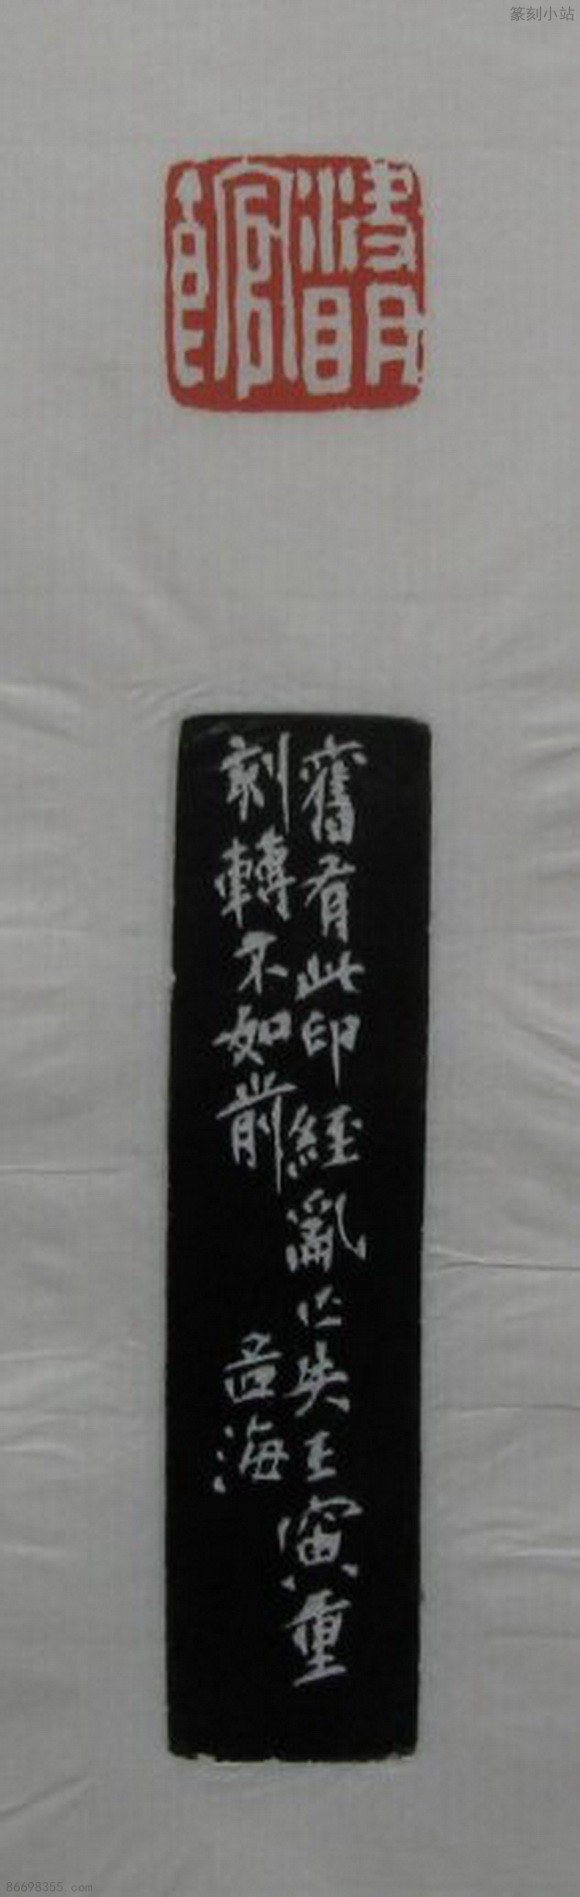 篆刻小站
決明館
舊有此印經亂亡失壬寅重
刻轉不如前 孟海
86698355.com